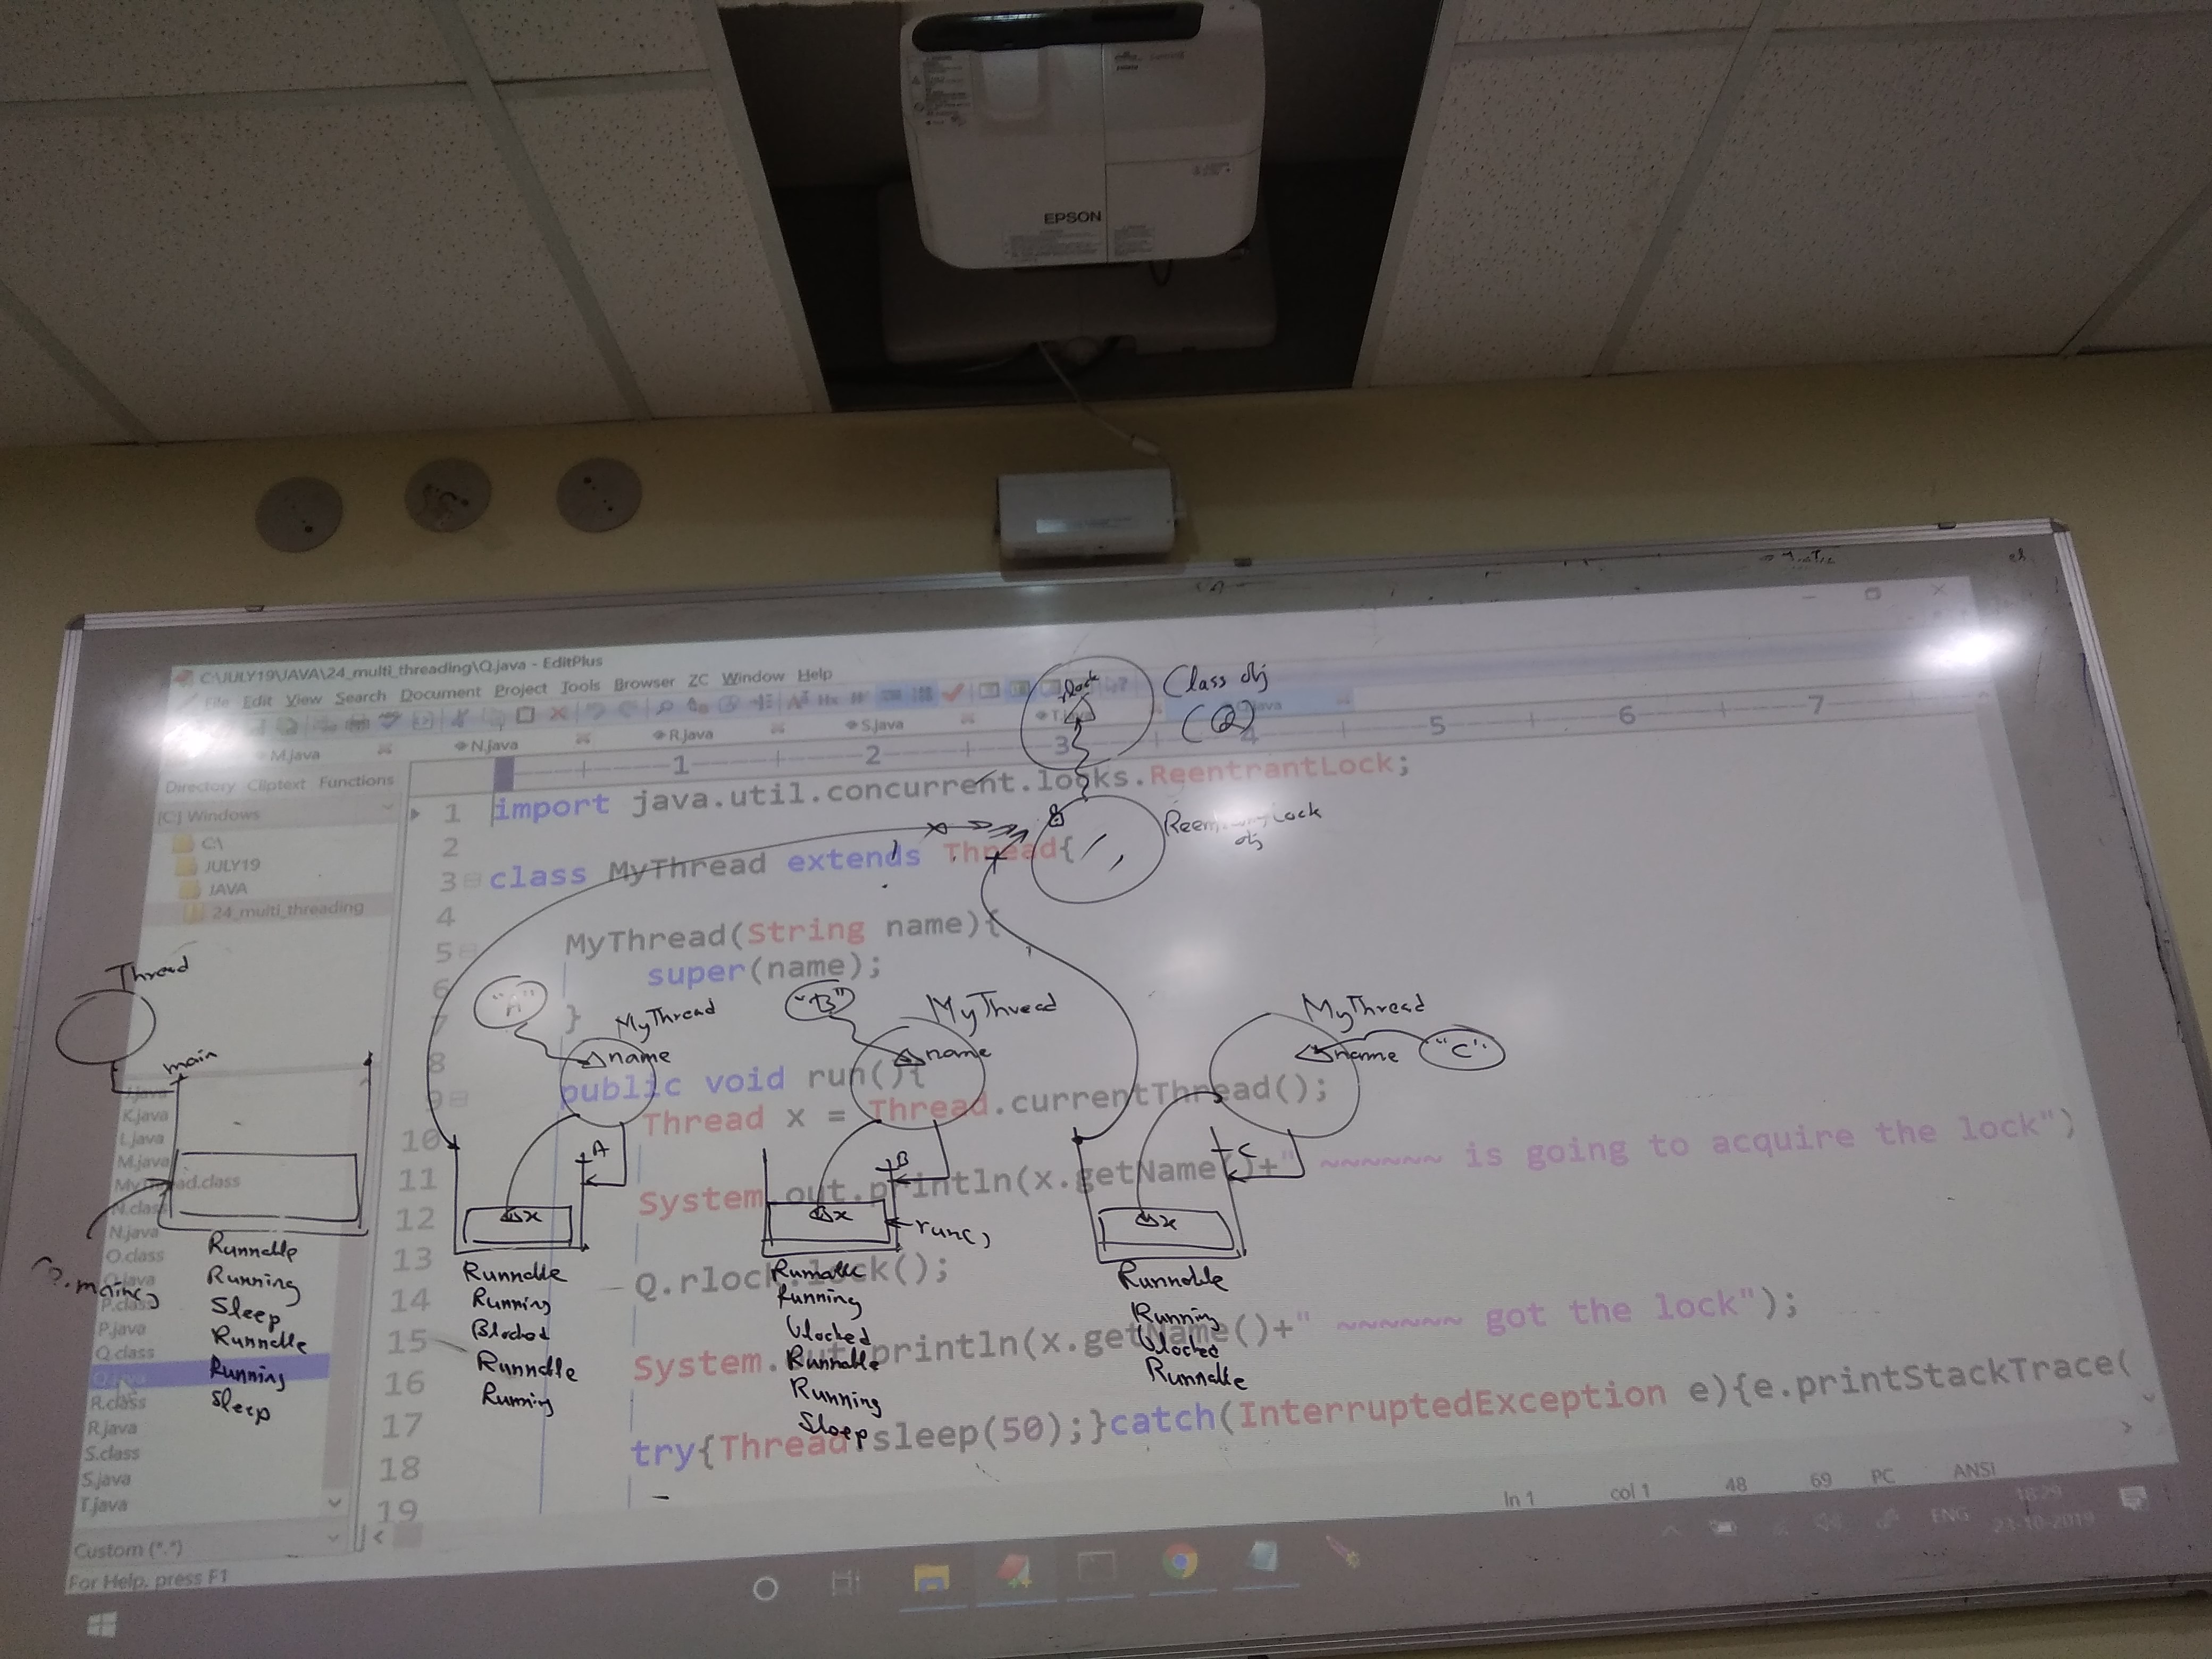 EPSON
C:\JULY19\JAVA\24_multi_threading\Q.java - EditPlus
File Edit View Search Document Project Tools Browser ZC Window Help
M.java N.java R.java S.java T.java
1 2 3 4 5 6 7
Directory Cliptext Functions
[C:] Windows
C:\
JULY19
JAVA
24_multi_threading
J.java
K.java
L.java
M.java
MyThread.class
N.class
N.java
O.class
P.class
P.java
Q.class
R.class
R.java
S.class
S.java
T.java
Custom (*.*)
For Help, press F1
1 import java.util.concurrent.locks.ReentrantLock;
2
3 class MyThread extends Thread{
4
5 MyThread(String name){
6 super(name);
7 }
8
9 public void run(){
10 Thread x = Thread.currentThread();
11
12 System.out.println(x.getName()+" ~~~~~~ is going to acquire the lock")
13
14 Q.rlock.lock();
15
16 System.out.println(x.getName()+" ~~~~~~ got the lock");
17
18 try{Thread.sleep(50);}catch(InterruptedException e){e.printStackTrace(
19
ln 1 col 1 48 69 PC ANSI
ENG
18:29
23-10-2019
rlock
Class obj
(Q)
Lock
obj
Thread
main
Runnable
Running
Sleep
Runnable
Running
Sleep
"A"
MyThread
name
A
x
Runnable
Running
Blocked
Runnable
Running
"B"
MyThread
name
B
x
run()
Runnable
Running
blocked
Runnable
Running
Sleep
MyThread
name
"C"
C
x
Runnable
Running
blocked
Runnable